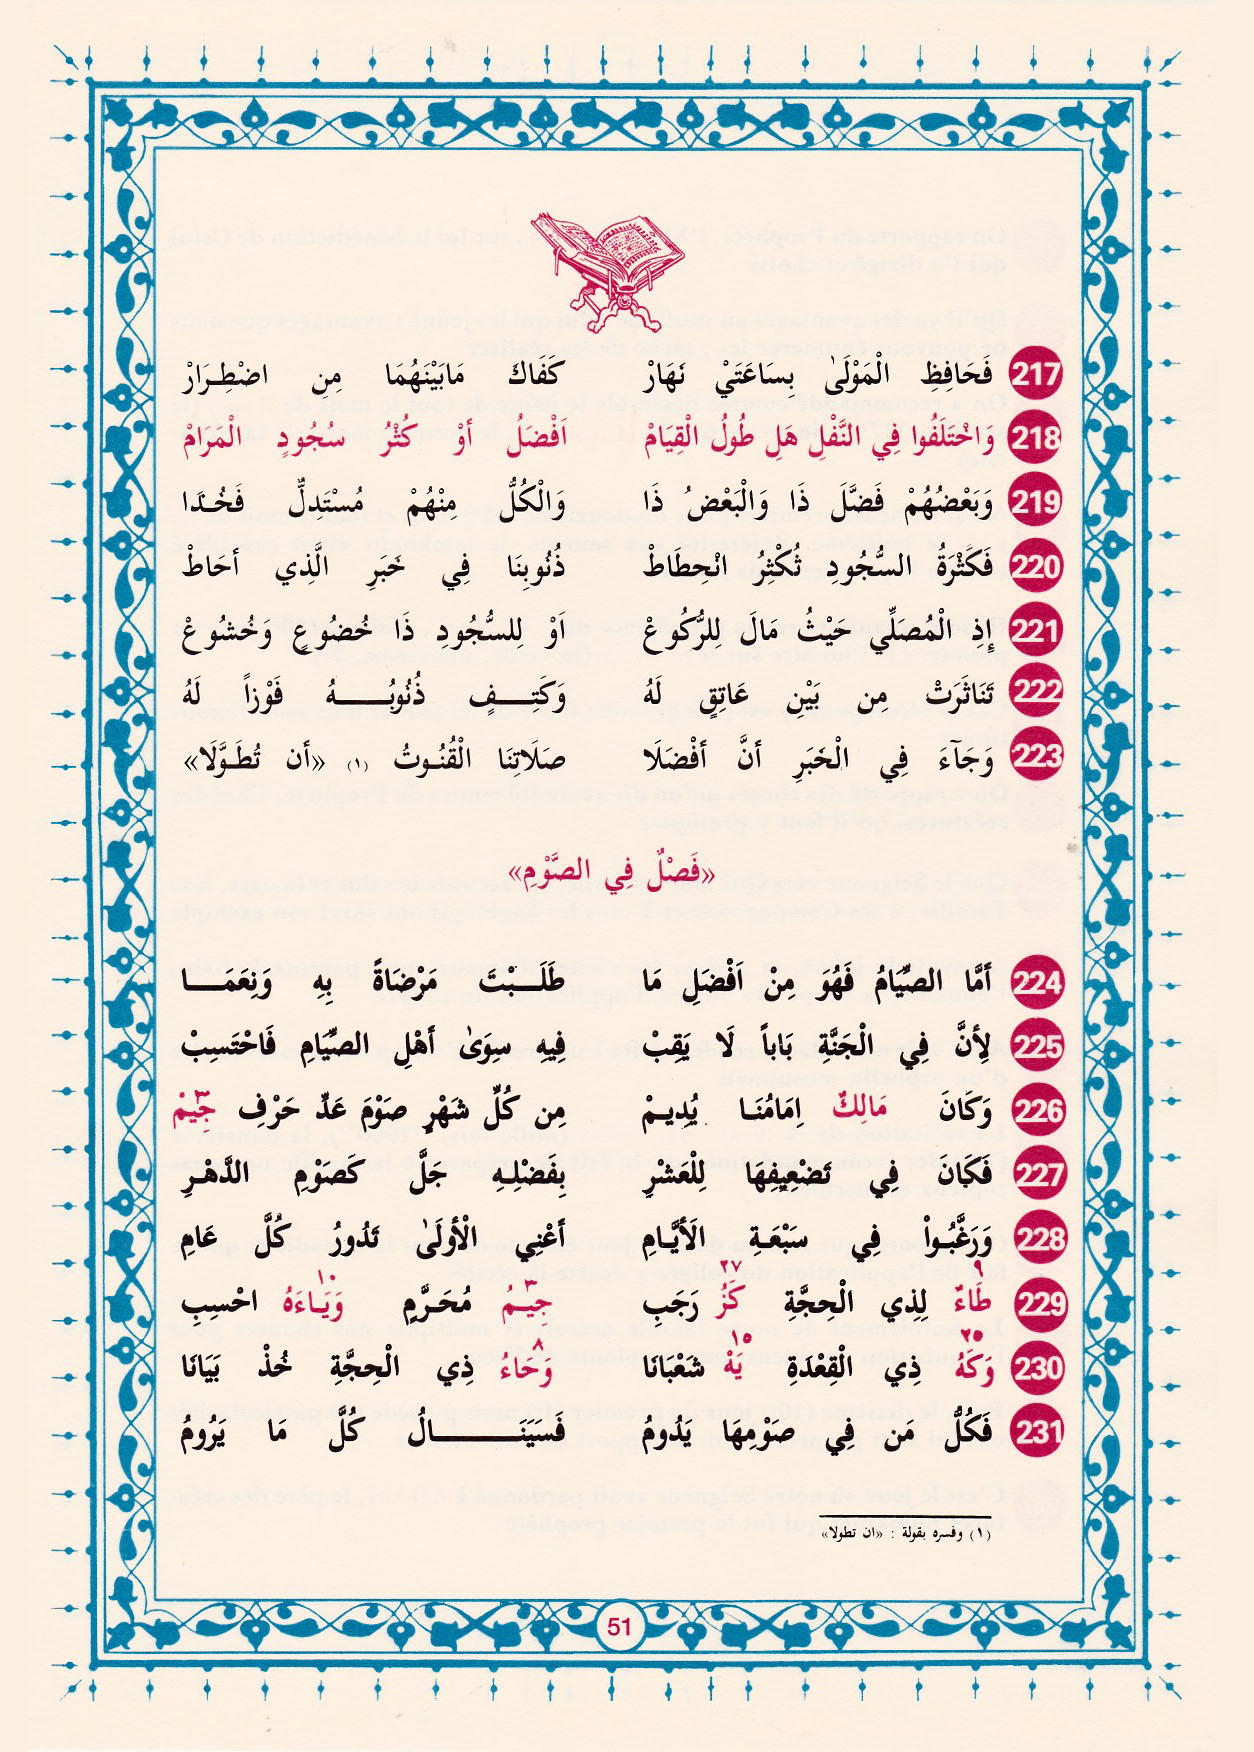 217 فَحَافِظِ الْمَوْلَىٰ بِسَاعَتَيْ نَهَارْ كَفَاكَ مَابَيْنَهُمَا مِنِ اضْطِرَارْ
218 وَاخْتَلَفُوا فِي النَّفْلِ هَلِ طُولُ الْقِيَامْ اَفْضَلُ أوْ كَثْرُ سُجُودٍ الْمَرَامْ
219 وَبَعْضُهُمْ فَضَّلَ ذَا وَالْبَعْضُ ذَا وَالْكُلُّ مِنْهُمْ مُسْتَدِلٌّ فَخُذَا
220 فَكَثْرَةُ السُّجُودِ تُكْثِرُ انْحِطَاطْ ذُنُوبِنَا فِي خَبَرِ الَّذِي أحَاطْ
221 إِذِ الْمُصَلِّي حَيْثُ مَالَ لِلرُّكُوعْ اَوْ لِلسُّجُودِ ذَا خُضُوعٍ وَخُشُوعْ
222 تَنَاثَرَتْ مِن بَيْنِ عَاتِقٍ لَهُ وَكَتِفٍ ذُنُوبُهُ فَوْزاً لَهُ
223 وَجَآءَ فِي الْخَبَرِ أنَّ أفْضَلَا صَلَاتِنَا الْقُنُوتُ (١) «أن تُطَوَّلَا»
«فَصْلٌ فِي الصَّوْمِ»
224 أمَّا الصِّيَامُ فَهُوَ مِنْ اَفْضَلِ مَا طَلَبْتَ مَرْضَاةً بِهِ وَنِعَمَا
225 لِأنَّ فِي الْجَنَّةِ بَاباً لَا يَقِبْ فِيهِ سِوَىٰ أهْلِ الصِّيَامِ فَاحْتَسِبْ
226 وَكَانَ مَالِكٌ اِمَامُنَا يُدِيمْ مِن كُلِّ شَهْرٍ صَوْمَ عَدِّ حَرْفِ جِيمْ ٣
227 فَكَانَ فِي تَضْعِيفِهَا لِلْعَشْرِ بِفَضْلِهِ جَلَّ كَصَوْمِ الدَّهْرِ
228 وَرَغَّبُواْ فِي سَبْعَةِ الَأيَّامِ أعْنِي الْأولَىٰ تَدُورُ كُلَّ عَامِ
229 طَاءٌ ٩ لِذِي الْحِجَّةِ كَزُ ٢٧ رَجَبِ جِيمُ ٣ مُحَرَّمٍ وَيَاءَهُ ١٠ احْسِبِ
230 وَكَهُ ٢٥ ذِي الْقِعْدَةِ يَهْ ١٥ شَعْبَانَا وَحَاءُ ٨ ذِي الْحِجَّةِ خُذْ بَيَانَا
231 فَكُلُّ مَن فِي صَوْمِهَا يَدُومُ فَسَيَنَالُ كُلَّ مَا يَرُومُ
(١) وفسره بقولة : «ان تطولا»
51